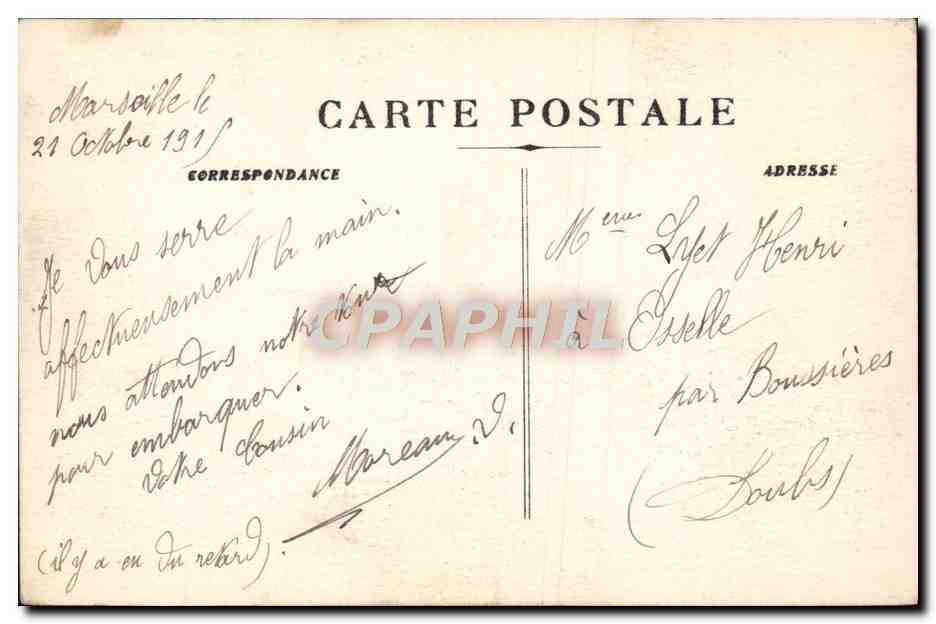 Marseille le
21 Octobre 1915
CARTE POSTALE
CORRESPONDANCE
ADRESSE
Je vous serre
affectueusement la main.
nous attendons notre tour
pour embarquer.
Votre Cousin
Moreau. D.
(il y a eu du retard).
Mme Lyet Henri
à Osselle
par Boussières
(Doubs)
CPAPHIL